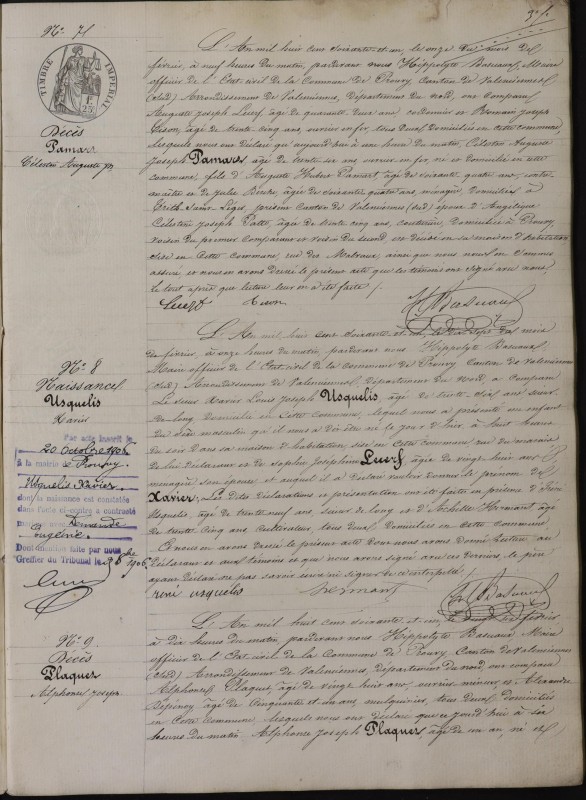 N° 7
TIMBRE IMPERIAL
Décès
Pamart
Célestin Auguste Jh
L'An mil huit cent soixante et un, le onze du mois de
février, à neuf heures du matin, pardevant nous Hippolyte Basuaux, Maire
officier de l'Etat civil de la Commune de Prouvy Canton de Valenciennes
(Sud) Arrondissement de Valenciennes, Département du Nord, ont comparu
Auguste Joseph Lucq, âgé de quarante deux ans, et Joseph
âgé de trente cinq ans, tous deux domiciliés en cette commune
lesquels nous ont déclaré qu'aujourd'hui à une heure du matin, Célestin Auguste
Joseph Pamart, âgé de trente ans, né et domicilié en cette
commune, fils d'Auguste Hubert Pamart âgé de soixante quatre ans,
et de Julie âgée de soixante quatre ans, ménagère, domiciliés à
Trith Saint Léger, présent Canton de Valenciennes (Sud) époux d'Angélique
Célestine Joseph âgée de trente cinq ans, couturière, domiciliée à Prouvy,
voisin du premier comparant et voisin du second, est décédé en sa maison d'habitation
sise en cette Commune, rue du ainsi que nous nous en sommes
assuré, et nous en avons dressé le présent acte que les témoins ont signé avec nous
le tout après que lecture leur en a été faite /.
N° 8
Naissance
Usquelis
Xavier
L'An mil huit cent soixante et un le dix sept du mois
de février, à onze heures du matin, pardevant nous Hippolyte Basuaux
Maire officier de l'Etat civil de la Commune de Prouvy Canton de Valenciennes
(Sud) Arrondissement de Valenciennes, Département du Nord a comparu
Le sieur Xavier Louis Joseph Usquelis, âgé de trente six ans scieur
de long domicilié en cette Commune, lequel nous a présenté un enfant
du sexe masculin qu'il nous a dit être né le jour d'hier à huit heures
du soir dans sa maison d'habitation, sise en cette Commune rue du marais
de lui déclarant et de Sophie Joséphine Lucq âgée de vingt huit ans
ménagère son épouse et auquel il a déclaré vouloir donner le prénom de
Xavier; Les dites déclarations et présentation ont été faites en présence d'
Usquelis, âgé de trente neuf ans, scieur de long et d'Achille Hermant âgé
de trente cinq ans cultivateur, tous deux domiciliés en cette Commune
Et nous en avons dressé le présent acte dont nous avons donné lecture au
déclarant et aux témoins et que nous avons signé avec ces derniers, le père
ayant déclaré ne pas savoir écrire ni signer de ce interpellé /.
rené usquelis hermant
Par acte inscrit le
20 Octobre 1906
à la mairie de Rouvroy
Usquelis Xavier
dont la naissance est constatée
dans l'acte ci-contre a contracté
Eugénie
Dont mention faite par nous
Greffier du Tribunal le 1906
N° 9
Décès
Plaquet
Alphonse Joseph
L'An mil huit cent soixante et un, le de février
à dix heures du matin, pardevant nous Hippolyte Basuaux Maire
officier de l'Etat civil de la Commune de Prouvy Canton de Valenciennes
(Sud) Arrondissement de Valenciennes, département du nord, ont comparu
Alphonse Plaquet, âgé de vingt huit ans, ouvrier mineur et Alexandre
âgé de cinquante et un ans, tous deux domiciliés
en cette Commune, lesquels nous ont déclaré que ce jourd'hui à six
heures du matin Alphonse Joseph Plaquet, âgé de un an, né et